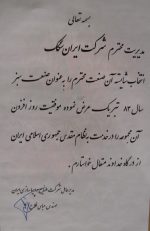 بسمه تعالی
مدیریت محترم شرکت ایران تکنک
انتخاب شایسته آن صنعت محترم را به عنوان صنعت سبز
سال ۸۳ تبریک عرض نموده موفقیت روز افزون
آن مجموعه را در خدمت به نظام مقدس جمهوری اسلامی ایران
از درگاه خداوند متعال خواستارم.
مدیرعامل شرکت
مهندس عباس